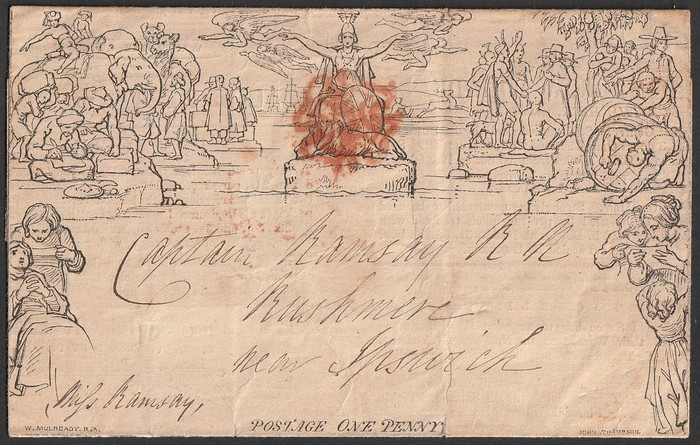 Captain Ramsay R N
Rushmere
near Ipswich
Miss Ramsay,
W. MULREADY. R.A.
POSTAGE ONE PENNY.
JOHN THOMPSON.